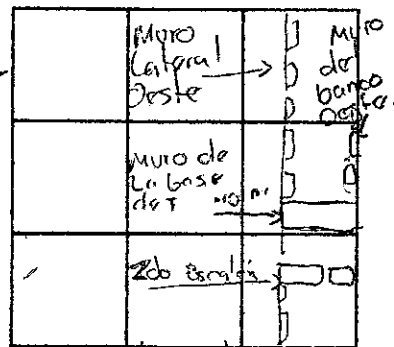 Muro
Lateral
Oeste
Muro
de
banco
Muro de
La base
de T
2do Escalón